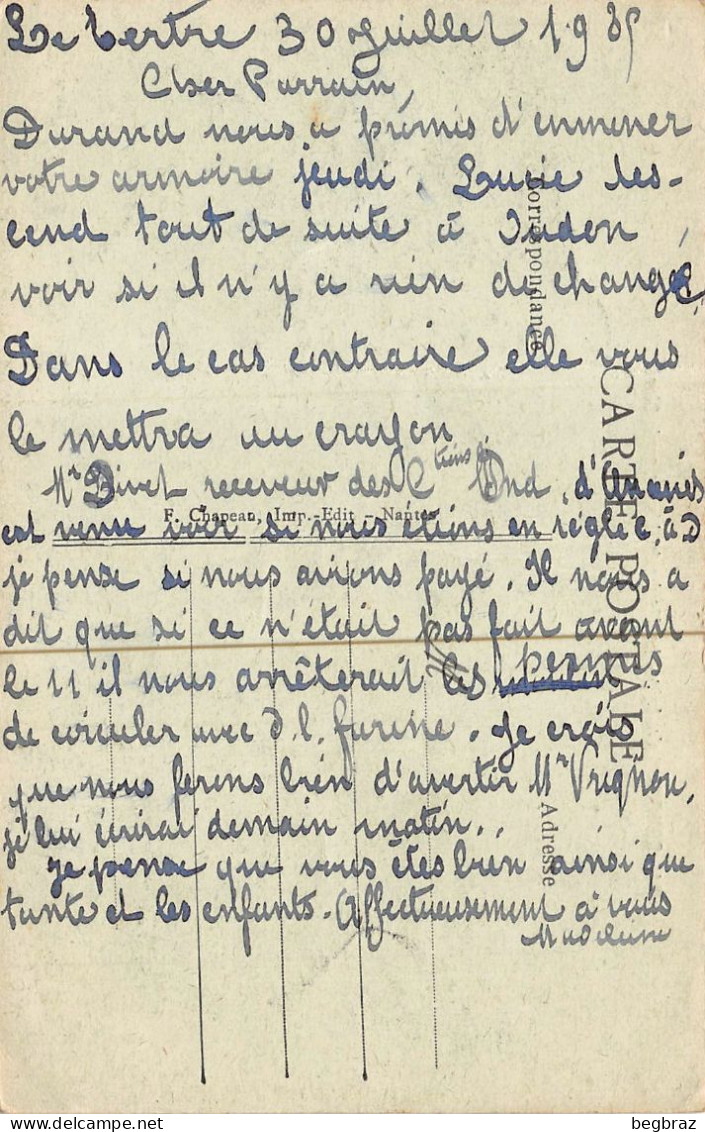 Le Tertre 30 Juillet 1935
Cher Parrain,
Durand nous a promis d'enmener
votre armoire jeudi. Lucie des-
cend tout de suite à Oudon,
voir si il n'y a rien de changé.
Dans le cas contraire elle vous
le mettra au crayon
Mr Divet receveur des Ctions Ind. d'Ancenis
est venu voir si nous étions en règle, à D
je pense si nous avions payé. Il nous a
dit que si ce n'était pas fait avant
le 11 il nous arrêterait les permis
de circuler avec d. l. farine. Je crois
que nous ferons bien d'avertir Mr Vrignon,
je lui écrirai demain matin..
Je pense que vous êtes bien ainsi que
tante et les enfants. Affectueusement à vous
Madeleine
Correspondance
CARTE POSTALE
Adresse
F. Chapeau, Imp.-Edit - Nantes
begbraz